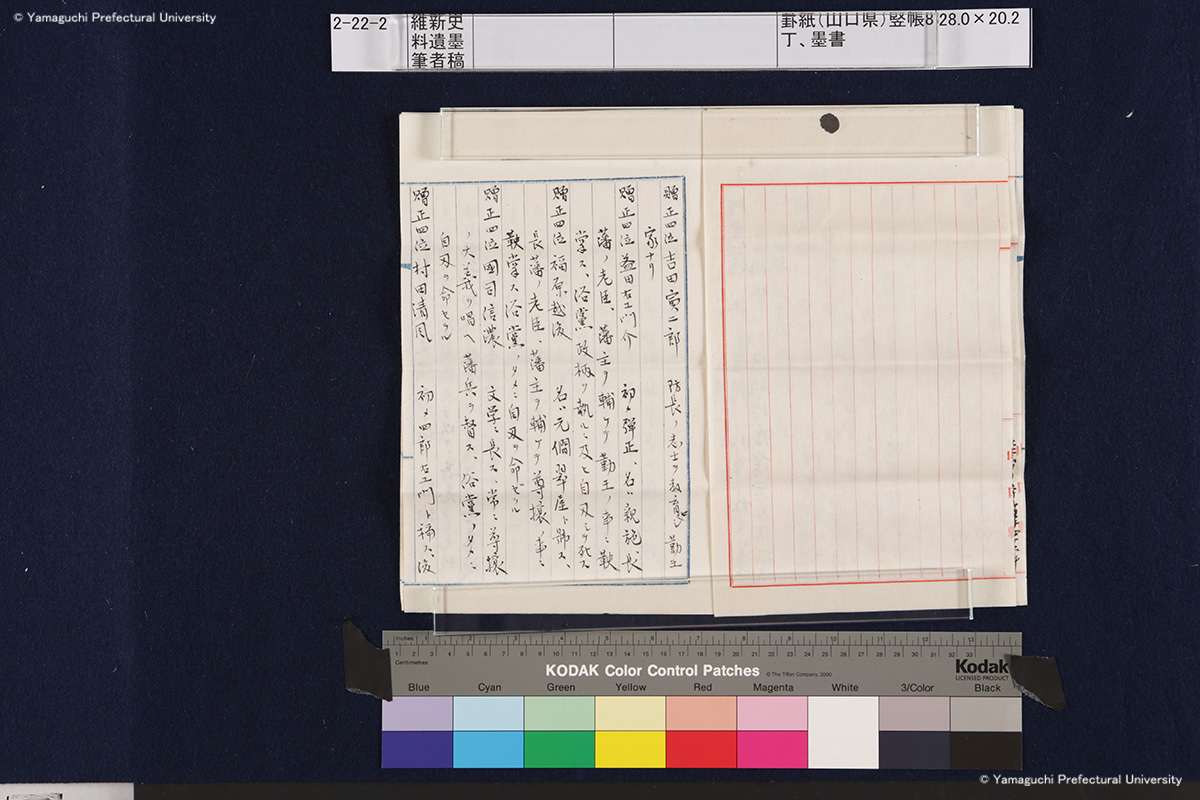 © Yamaguchi Prefectural University
2-22-2
維新史
料遺墨
筆者稿
罫紙(山口県)竪帳8
丁、墨書
28.0×20.2
贈正四位吉田寅二郎 防長ノ志士ヲ教育シ勤王
家ナリ
贈正四位益田右衛門介 初メ弾正、名ハ親施、長
藩ノ老臣、藩主ヲ輔ケテ勤王ノ事ニ鞅
掌ス、俗黨政柄ヲ執ルニ及ヒ自刃シテ死ス
贈正四位福原越後 名ハ元僴翠崖ト號ス、
長藩ノ老臣、藩主ヲ輔ケテ尊攘ノ事ニ
鞅掌ス俗黨ノタメニ自刃ヲ命ゼラル
贈正四位國司信濃 文学ニ長ス、常ニ尊攘
ノ大義ヲ唱ヘ藩兵ヲ督ス、俗黨ノタメニ
自刃ヲ命セラル
贈正四位村田清風 初メ四郎右衛門ト稱ス、後
Inches 1 2 3 4 5 6 7 8 9 10 11 12 13
Centimetres
KODAK Color Control Patches
© The Tiffen Company, 2000
Kodak
LICENSED PRODUCT
Blue Cyan Green Yellow Red Magenta White 3/Color Black
© Yamaguchi Prefectural University